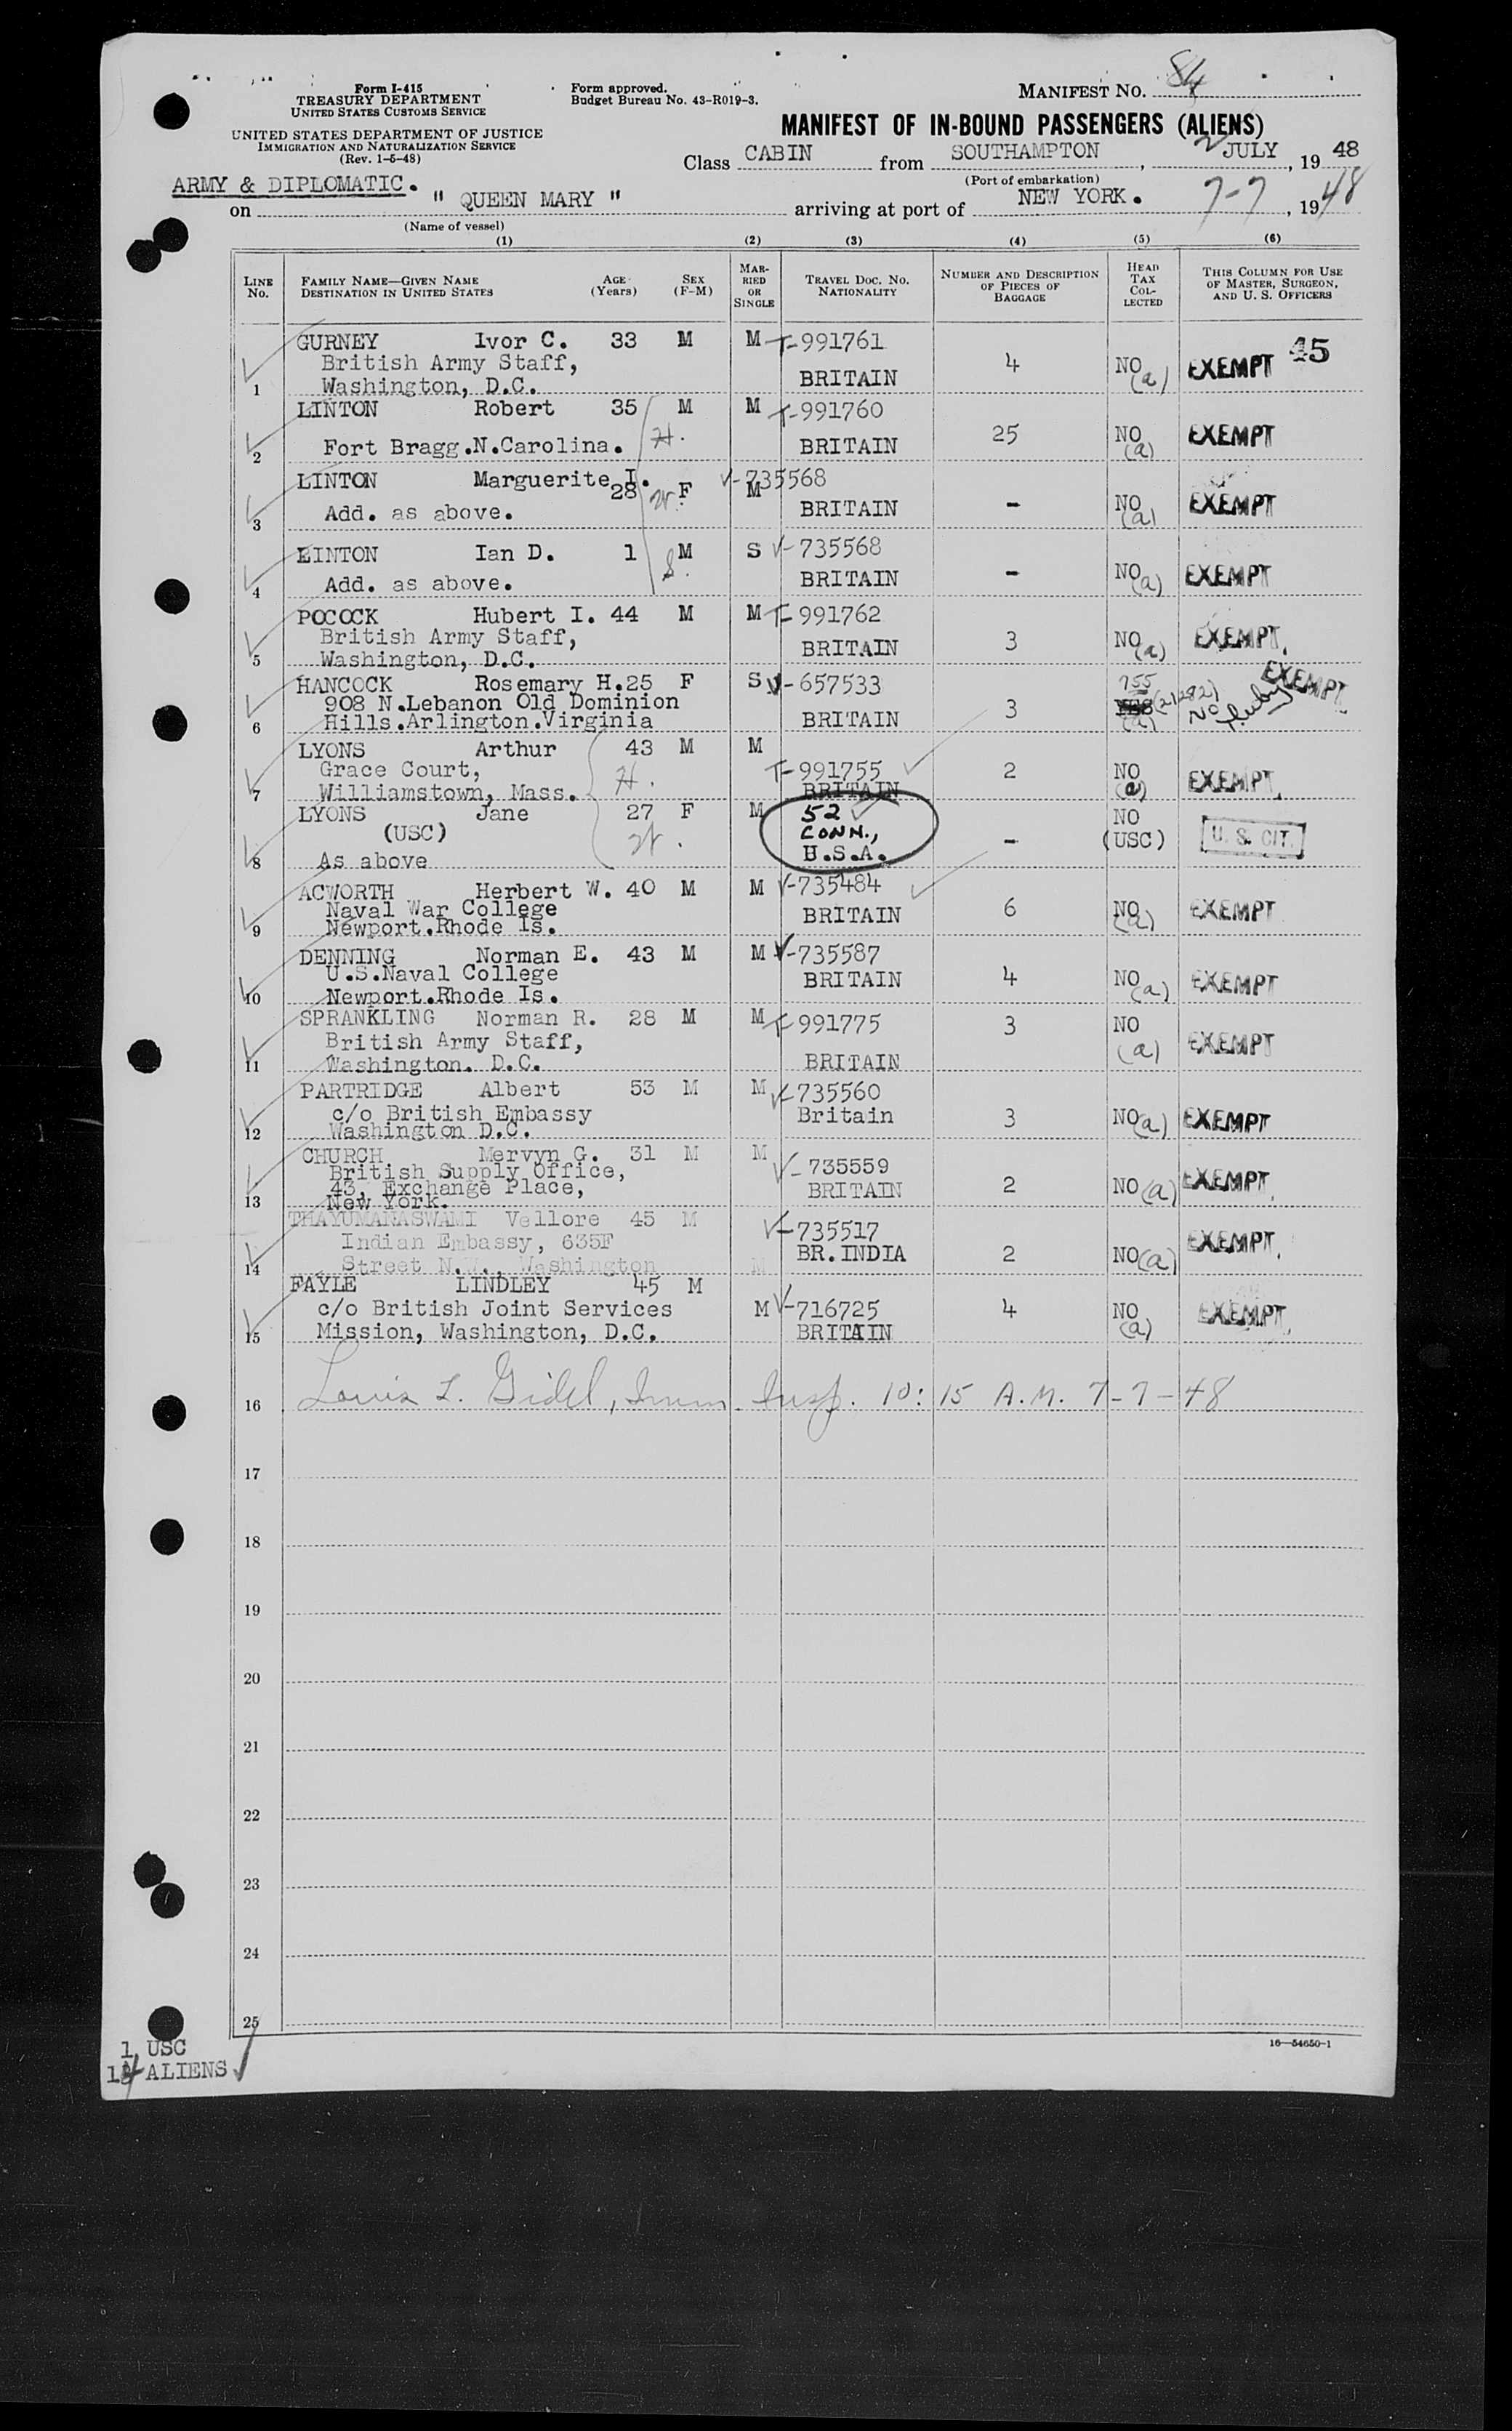 Form I-415
TREASURY DEPARTMENT
UNITED STATES CUSTOMS SERVICE
UNITED STATES DEPARTMENT OF JUSTICE
IMMIGRATION AND NATURALIZATION SERVICE
(Rev. 1-5-48)
Form approved.
Budget Bureau No. 43-R019-3.
MANIFEST NO. 84
MANIFEST OF IN-BOUND PASSENGERS (ALIENS)
Class CABIN from SOUTHAMPTON, 2 JULY, 19 48
(Port of embarkation)
ARMY & DIPLOMATIC.
on " QUEEN MARY " arriving at port of NEW YORK. 7-7, 1948
(Name of vessel)
(1) (2) (3) (4) (5) (6)
LINE No.
FAMILY NAME—GIVEN NAME DESTINATION IN UNITED STATES
AGE (Years)
SEX (F-M)
MARRIED OR SINGLE
TRAVEL DOC. NO. NATIONALITY
NUMBER AND DESCRIPTION OF PIECES OF BAGGAGE
HEAD TAX COLLECTED
THIS COLUMN FOR USE OF MASTER, SURGEON, AND U. S. OFFICERS
GURNEY Ivor C. 33 M M T-991761 45
British Army Staff, 4 NO (a) EXEMPT
1 Washington, D.C. BRITAIN
LINTON Robert 35 M M T-991760
H. 25 NO (a) EXEMPT
2 Fort Bragg.N.Carolina. BRITAIN
LINTON Marguerite I. V-735568
28 W. F M
3 Add. as above. BRITAIN - NO (a) EXEMPT
LINTON Ian D. 1 M S V-735568
4 Add. as above. S. BRITAIN - NO (a) EXEMPT
POCOCK Hubert I. 44 M M T-991762
British Army Staff, 3 NO (a) EXEMPT.
5 Washington, D.C. BRITAIN
HANCOCK Rosemary H.25 F S V-657533 755 EXEMPT.
908 N.Lebanon Old Dominion 3 (a) No
6 Hills.Arlington.Virginia BRITAIN
LYONS Arthur 43 M M
Grace Court, H. T-991755 2 NO (a) EXEMPT.
7 Williamstown, Mass. BRITAIN
LYONS Jane 27 F M 52 NO
(USC) W. CONN., - (USC) U. S. CIT.
8 As above U.S.A.
ACWORTH Herbert W. 40 M M V-735484
Naval War College BRITAIN 6 NO (a) EXEMPT
9 Newport.Rhode Is.
DENNING Norman E. 43 M M V-735587
U.S.Naval College BRITAIN 4 NO (a) EXEMPT
10 Newport.Rhode Is.
SPRANKLING Norman R. 28 M M T-991775 3 NO
British Army Staff, (a) EXEMPT
11 Washington. D.C. BRITAIN
PARTRIDGE Albert 53 M M V-735560
c/o British Embassy Britain 3 NO (a) EXEMPT
12 Washington D.C.
CHURCH Mervyn G. 31 M M
British Supply Office, V-735559
43, Exchange Place, BRITAIN 2 NO (a) EXEMPT.
13 New York.
THAYUMANASWAMI Vellore 45 M V-735517
Indian Embassy, 635F BR.INDIA 2 NO (a) EXEMPT.
14 Street N.W., Washington M
FAYLE LINDLEY 45 M
c/o British Joint Services M V-716725 4 NO (a) EXEMPT.
15 Mission, Washington, D.C. BRITAIN
16 Louis L. Gidel, Imm. Insp. 10:15 A.M. 7-7-48
17
18
19
20
21
22
23
24
25
16—54650-1
1 USC
14 ALIENS